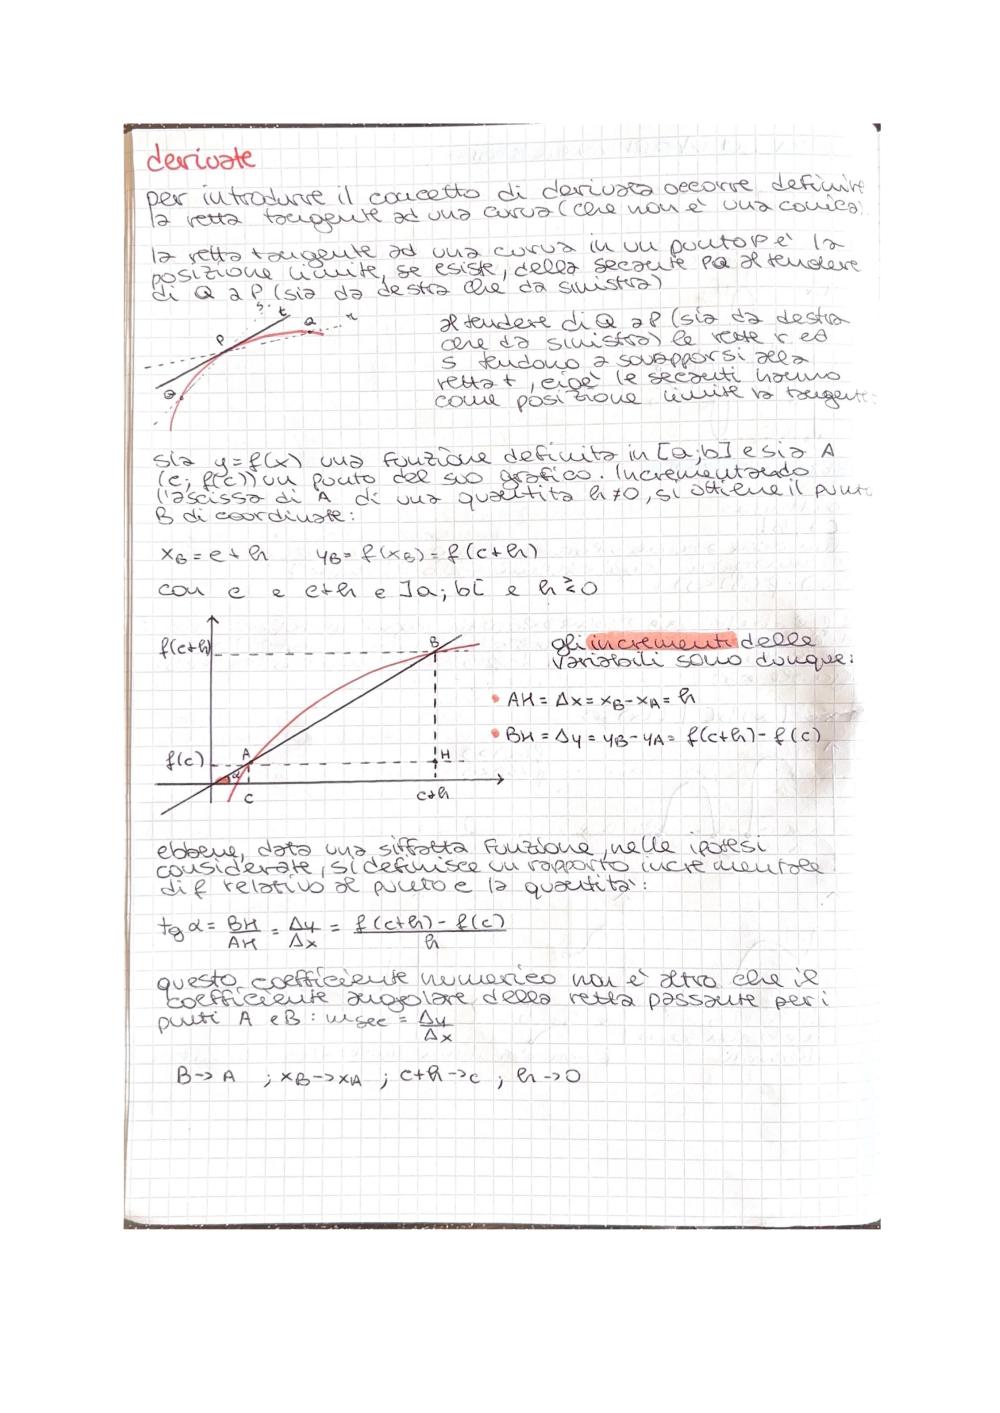 derivate
per introdurre il concetto di derivata occorre definire
la retta tangente ad una curva (che non è una conica)
la retta tangente ad una curva in un punto P è la
posizione limite, se esiste, della secante PQ al tendere
di Q a P (sia da destra che da sinistra)
s t
Q r
P
Q
al tendere di Q a P (sia da destra
che da sinistra) le rette r ed
s tendono a sovrapporsi alla
retta t, cioè le secanti hanno
come posizione limite la tangente.
sia y=f(x) una funzione definita in [a;b] e sia A
(c; f(c)) un punto del suo grafico. Incrementando
l'ascissa di A di una quantità h≠0, si ottiene il punto
B di coordinate:
xB = c+h yB = f(xB) = f(c+h)
con c e c+h e ]a; b[ e h≷0
f(c+h) B
f(c) A H
α
C c+h
gli incrementi delle
variabili sono dunque:
• AH = Δx = xB-xA = h
• BH = Δy = yB-yA = f(c+h)- f(c)
ebbene, data una siffatta funzione, nelle ipotesi
considerate, si definisce un rapporto incrementale
di f relativo al punto c la quantità:
tg α = BH/AH = Δy/Δx = f(c+h) - f(c)/h
questo coefficiente numerico non è altro che il
coefficiente angolare della retta passante per i
punti A e B : msec = Δy/Δx
B->A ; xB->xA ; c+h->c ; h->0